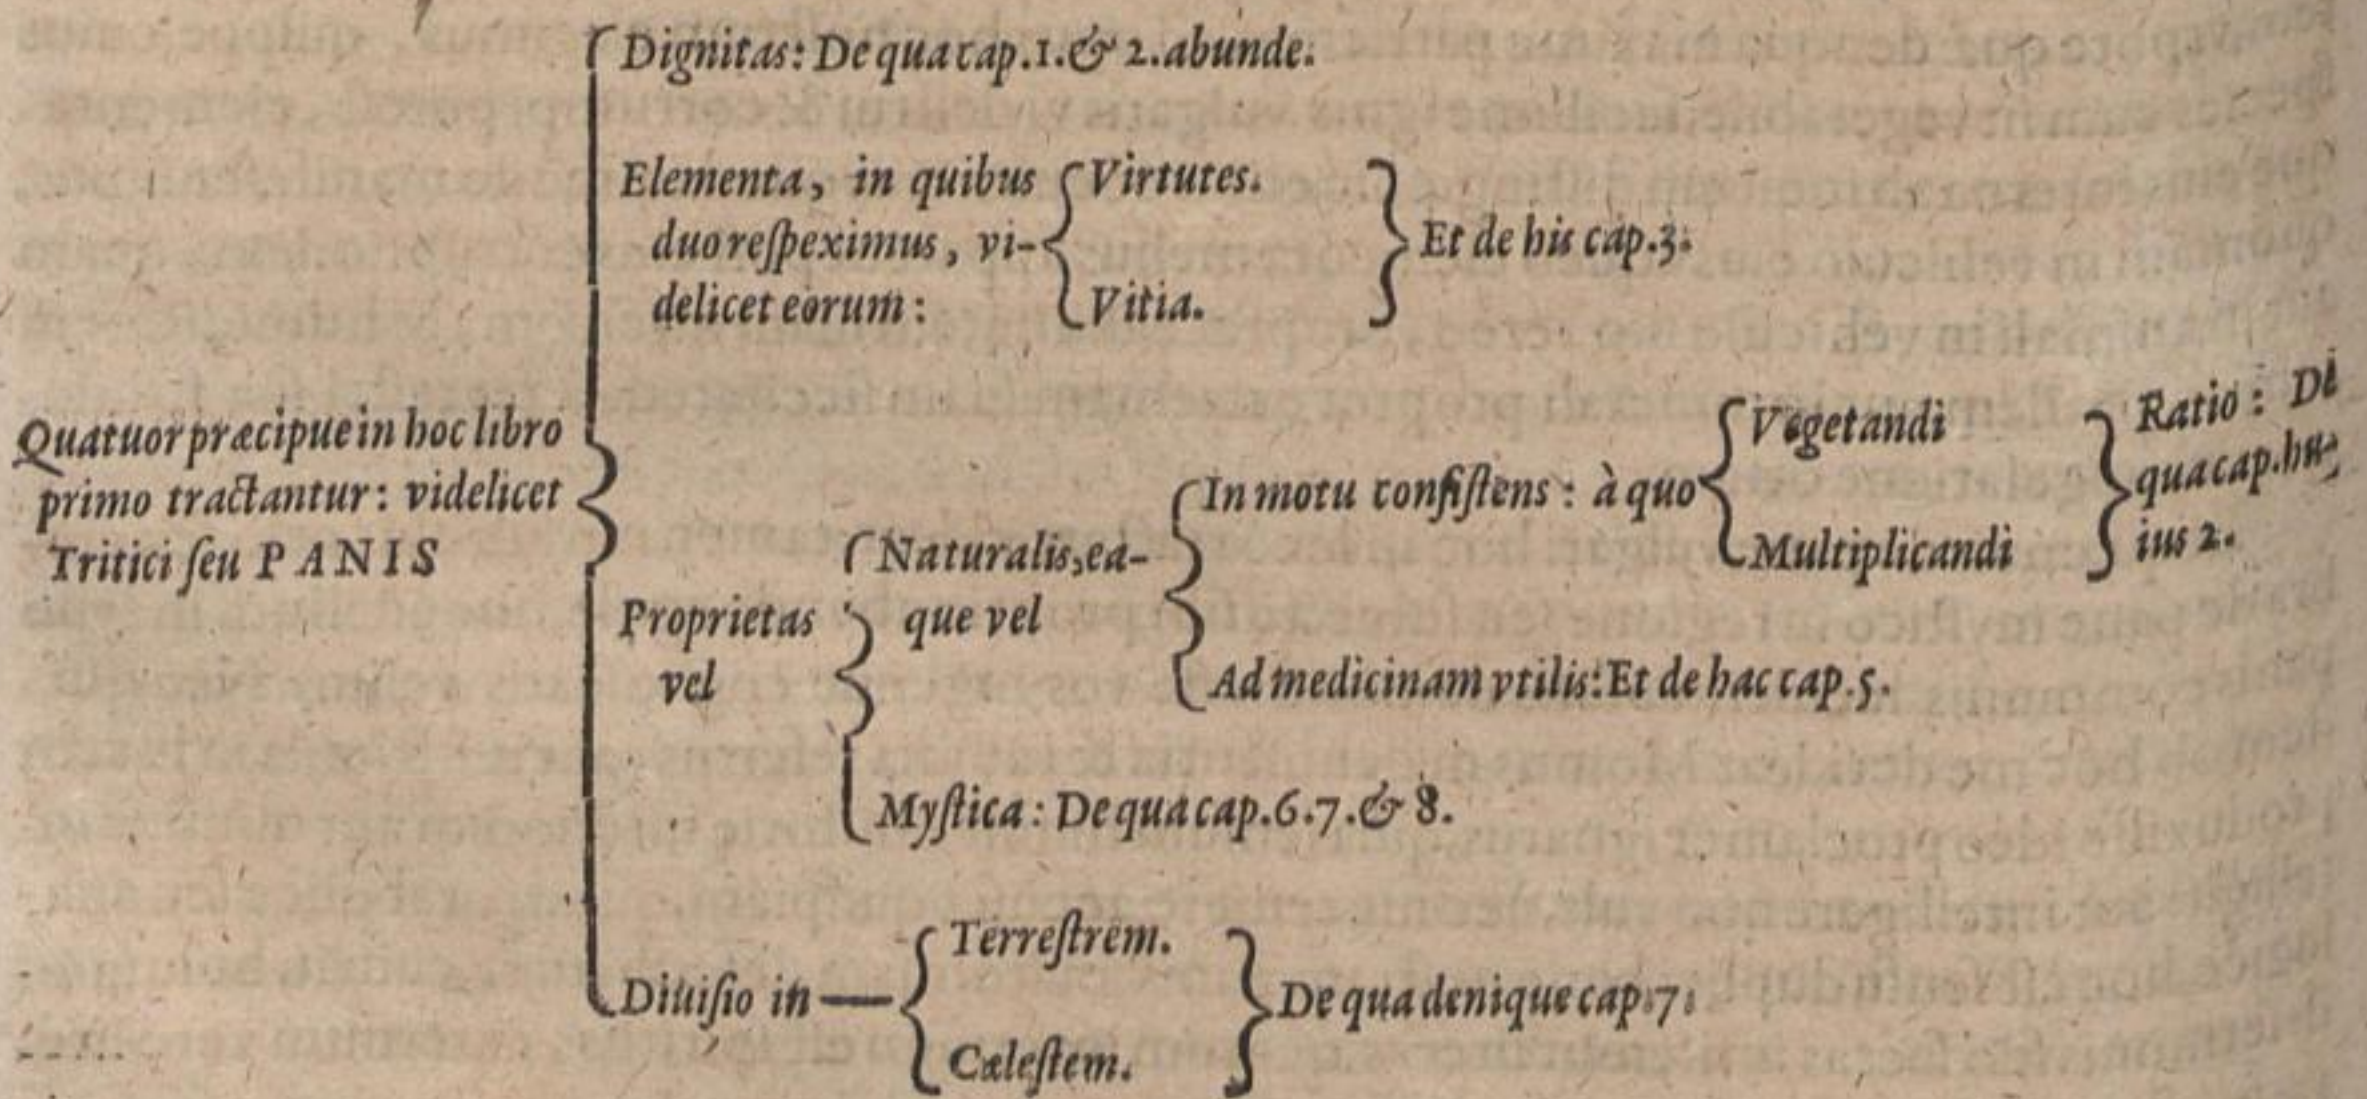 Quatuor præcipue in hoc libro
primo tractantur: videlicet
Tritici ſeu PANIS
Dignitas: De qua cap.1.& 2.abunde.
Elementa, in quibus
duo reſpeximus, vi-
delicet eorum:
Virtutes.
Vitia.
Et de his cap.3.
Proprietas
vel
Naturalis,ea-
que vel
In motu conſiſtens: à quo
Vegetandi
Multiplicandi
Ratio: De
qua cap.hu-
ius 2.
Ad medicinam vtilis:Et de hac cap.5.
Myſtica: De qua cap.6.7.& 8.
Diuiſio in
Terreſtrem.
Cæleſtem.
De qua denique cap.7.